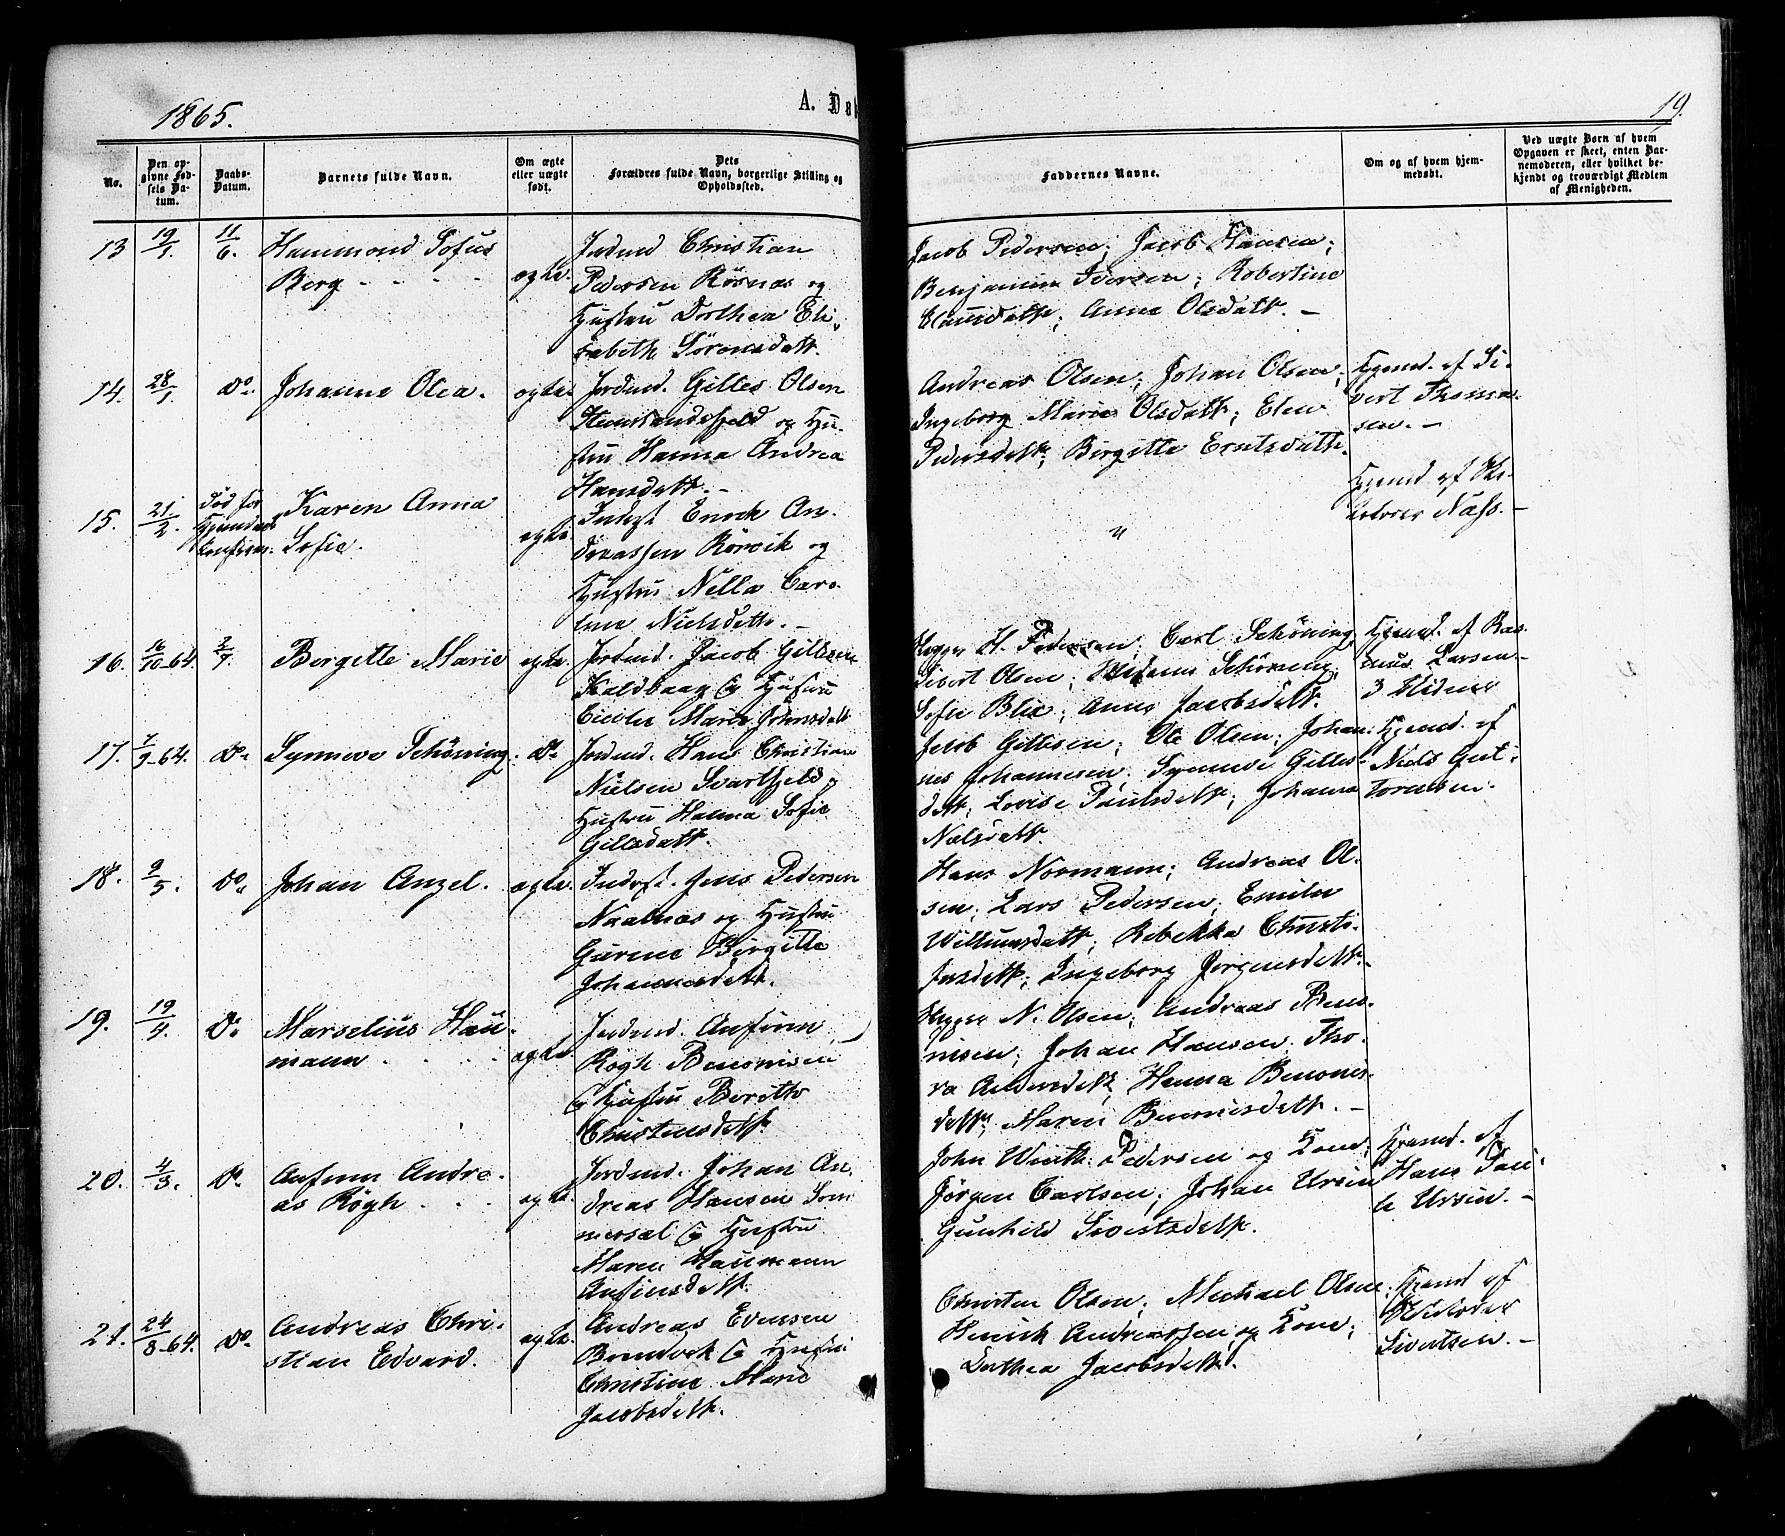 1865.
A. Døb
19.
No.
Den op-
givne Fød-
sels Da-
tum.
Daabs-
Datum.
Barnets fulde Navn.
Om ægte
eller uægte
født.
Dets
Forældres fulde Navn, borgerlige Stilling og
Opholdssted.
Faddernes Navne.
Om og af hvem hjem-
medøbt.
Ved uægte Børn af hvem
Opgaven er skeet, enten Bar-
nemoderen, eller hvilket be-
kjendt og troværdigt Medlem
af Menigheden.
13 19/1. 11/6. Hammond Sofus
Berg - - - -
ægte.
Jordmd Christian
Pedersen Rösnæs og
Hustru Dorthea Eli-
sabeth Sörensdatt.
Jacob Pedersen; Jacob Hansen;
Benjamin Iversen; Robertine
Clausdatt; Anne Olsdatt. -
14. 28/1. do. Johanne Olea. ægte.
Jordmd. Gilles Olsen
og Hu-
stru Hanna Andrea
Hansdatt. -
Andreas Olsen; Johan Olsen;
Ingeborg Marie Olsdatt; Elen
Pedersdatt; Birgitte Erntsdatt.
Hjemd. af Si-
vert Thoma-
sen. -
15. 21/2. Död för
Hjemdaab
Karen Anna
Sofie.
ægte.
Indst Enoch An-
dreassen Rörvik og
Hustru Nella Caro-
line Nielsdatt. -
"
Hjemd af
Næss. -
16. 16/10-64. 2/7. Bergitte Marie ægte.
Jordmd. Jacob Gillesen
Kaldvaag og Hustru
Marie Johnsdatt
H. Pedersen; Carl Schöning
Sivert Olsen; Schöning;
Sofie Blix; Anne Jacobsdatt.
Hjemd. af Ras-
mus Larsen
3 Vidner
17. 7/9-64. do. Synneve Schöning. do
Jordmd. Hans Christian
Nielsen Svartfjeld og
Hustru Hanna Sofie
Gillesdatt.
Jacob Gillesen; Ole Olsen; Johan-
nes Johannesen; Synneve Gilles-
datt; Lovise Paulsdatt; Johanna
Nielsdatt.
Hjemd. af
Niels Gut-
tormsen.
18. 9/5. do. Johan Angel. ægte.
Indst. Jens Pedersen
Naalnæs og Hustru
Gurine Birgitte
Johannesdatt.
Hans Normann; Andreas Ol-
sen; Lars Pedersen; Emilie
Willumsdatt; Rebekka Christo-
fersdatt; Ingeborg Jörgensdatt.
19. 19/4. do. Marselius Hau-
mann - - - -
ægte.
Jordmd. Anfinn
Rögh Benonisen
og Hustru Beritte
Christensdatt.
N. Olsen; Andreas Beno-
nisen; Johan Hansen; Tho-
ra Andersdatt; Hanna Benonis-
datt; Maren Benonisdatt. -
20. 4/3. do. Anfinn Andre-
as Rögh - - -
ægte.
Jordmd. Johan An-
dreas Hansen Som-
mersæl og Hustru
Maren Haumann
Anfinsdatt.
John Wirth Pedersen og Kone;
Jörgen Carlsen; Johan Ursin
Gunhild Sivertsdatt.
Hjemd. af
Hans Pau-
li Ursin. -
21. 24/8-64. do. Andreas Chri-
stian Edvard.
ægte.
Andreas Evensen
Brendvik og Hustru
Christine Marie
Jacobsdatt.
Christen Olsen; Michael Olsen
Henrik Andreassen og Kone;
Dorthea Jacobsdatt.
Hjemd af
Sivertsen. -